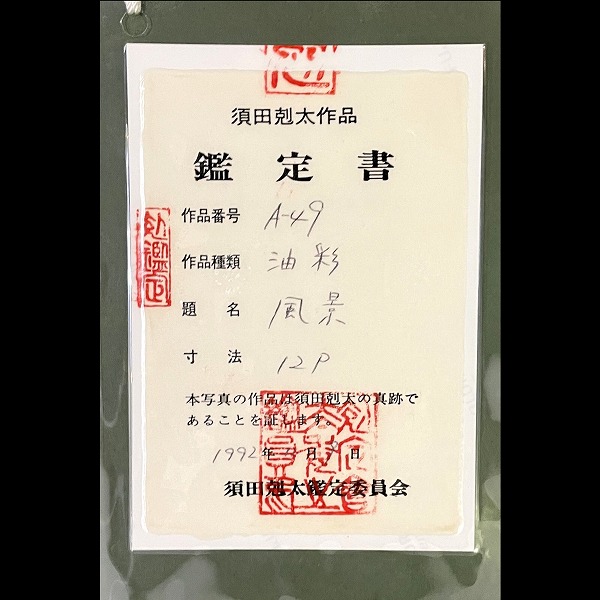 須田剋太作品
鑑定書
作品番号 A-49
作品種類 油彩
題名 風景
寸法 12P
本写真の作品は須田剋太の真跡で
あることを証します。
1992年 月 日
須田剋太鑑定委員会